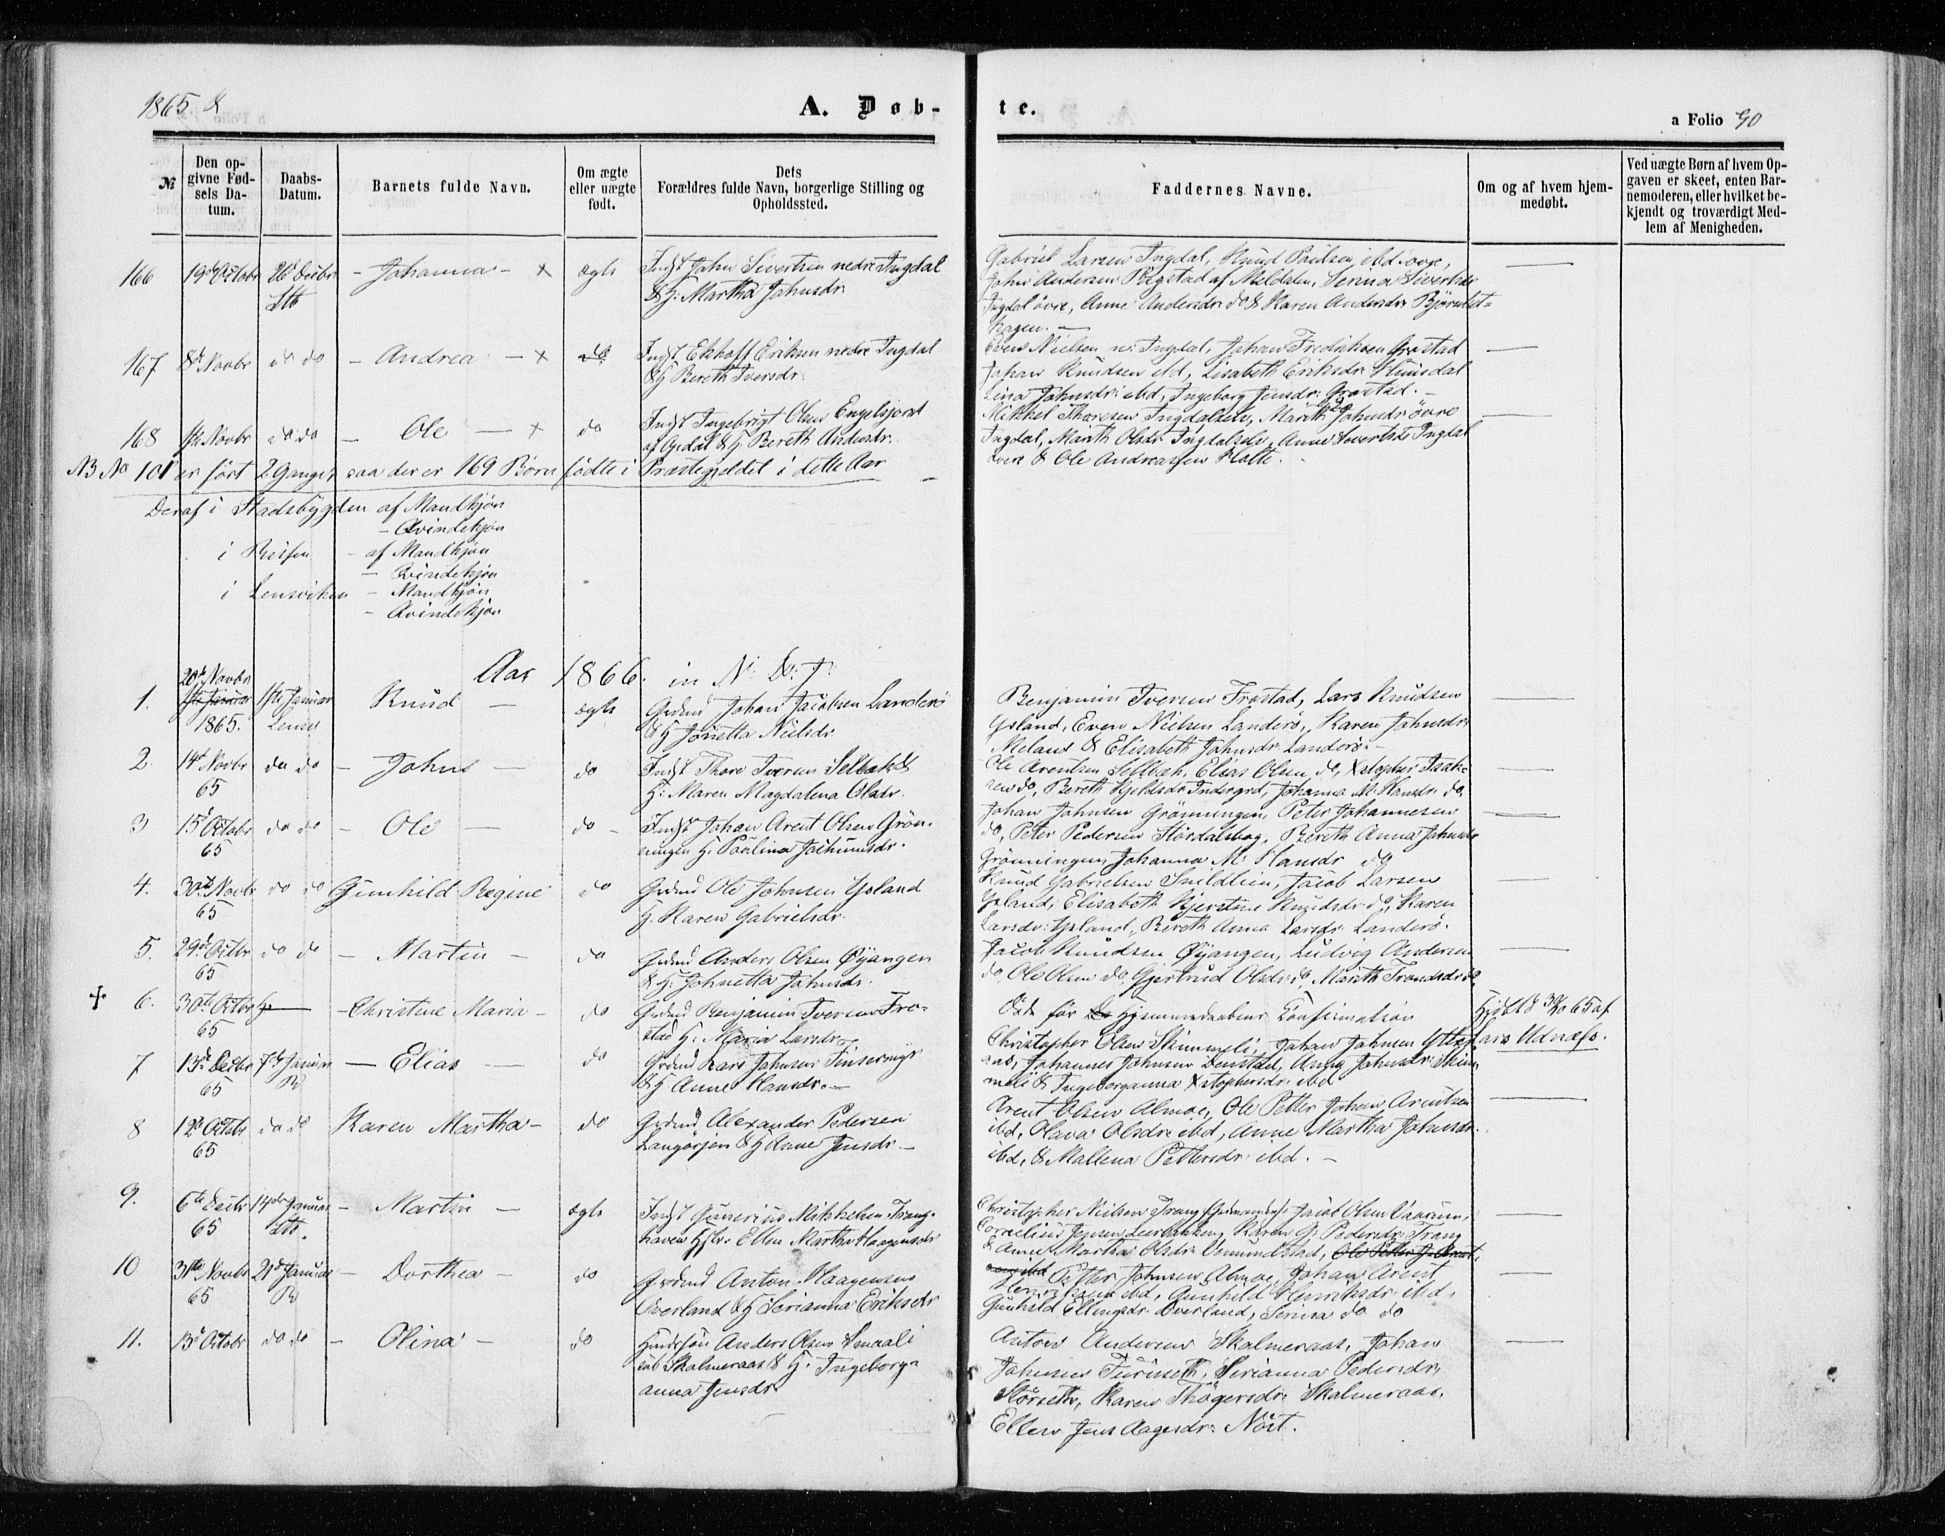 1865 &
A. Døb-
te.
a Folio 90
№
Den op-
givne Fød-
sels Da-
tum.
Daabs-
Datum.
Barnets fulde Navn.
Om ægte
eller uægte
født.
Dets
Forældres fulde Navn, borgerlige Stilling og
Opholdssted.
Faddernes Navne.
Om og af hvem hjem-
medøbt.
Ved uægte Børn af hvem Op-
gaven er skeet, enten Bar-
nemoderen, eller hvilket be-
kjendt og troværdigt Med-
lem af Menigheden.
166 19de Octobr 26de Decbr - Johanna - x ægte Indst John Sivertsen nedre Ingdal
& H: Martha Johnsdr
Gabriel Larsen Ingdal, Knud Poulsen ibd øvre,
John Andersen af Meldalen, Serina Sivertsdr
Ingdal øvre, Anne Andersdr do & Karen Andersdr
hagen. -
167 8de Novbr do do - Andrea - x do Indst Ekhoff Eriksen nedre Ingdal
& H Bereth Iversdr:
Nielsen n: Ingdal, Johan Fredriksen Grøstad
Johan Knudsen ibd, Lisabeth Eriksdr
Lina Johnsdr: ibd, Ingeborg Jensdr: Grøstad. -
168 Novbr do do - Ole - x do Indst Ingebrigt Olsen
& H Bereth Andersdr.
Mikkel Thoresen Ingdalselv, Marith Johnsdr øvre
Ingdal, Marith Olsdr Ingdalselv, Anne Sivertsdr Ingdal
øvre & Ole Andreassen Holte.
NB No 101 er ført 2 Gange, saa der er 169 Børn fødte i Præstegjeldet i dette Aar
Deraf i Stadsbygden af Mandkjøn
- Qvindekjøn
i Reissen - af Mandkjøn
- Qvindekjøn
i Lensviken - Mandkjøn
- Qvindekjøn
Aar 1866. in N: D: J:
20de Novbr
1. 1ste Januar 1ste Januar Knud - ægte Grdmd Johan Jacobsen Landerø
1865. Lensv & H Jonetta Nielsdr
Benjamin Iversen Frostad, Lars Knudsen
Ysland, Even Nielsen Landerø, Karen Johnsdr
Meland & Elisabeth Johnsdr Landerø: -
2. 14de Novbr do do - Johns - do Indst Thore Iversen Selbæk &
65 H: Maren Magdalena Olsdr.
Ole Arentsen Selbæk, Elias Olsen do, Xstopher Isak-
sen do, Bereth Johanna M. Hansdr do,
3 15de Octobr do do - Ole - do - Indst Johan Arent Olsen Grøn-
65 ningen H. Paulina Jochumsdr.
Johan Johnsen Grønningen, Peter Johannesen
do, Peter Pedersen Størdalshog, Bereth Anna Johnsdr
Grønningen, Johanna M. Hansdr do
4. 30de Novbr do do Gunhild Regine do Grdmd Ole Johnsen Ysland
65 H. Karen Gabrielsdr.
Knud Gabrielsen Snildlien, Jacob Larsen
Ysland, Elisabeth Kjerstine Knudsdr do, Karen
Larsdr: Ysland, Bereth Anna Larsdr Landerø.
5. 29de Octbr do do - Martin - do Grdmd Anders Olsen Øyangen
65 & H: Johnetta Johnsdr.
Jacob Knudsen Øyangen, Ludvig Andersen
do, Ole Olsen do Gjertrud Olsdr: do, Marith Trondsdr do
+ 6. 30te Octbr - Christine Maria - do Grdmd Benjamin Iversen Fro-
65 stad H: Maria Larsdr
Døde før Hjemmedaabens Confirmation
Hjdbt d 30/10 65 af
Lars Udnæss.
7 13de Decbr 7de Januar - Elias - do Grdmd Lars Johnsen
65 R & H Anne Hansdr. -
Christopher Olsen Skimmeli, Johan Johnsen
aas, Johannes Johnsen Denstdal, Anne Johnsdr Skim-
meli & Ingeborganna Xstophersdr: ibd
8 12de Octbr do do Karen Martha - do Grdmd Alexander Pedersen
65 Langørjen & H Anne Jensdr -
Arent Olsen Almoe, Ole Petter Johan Arentsen
ibd, Olava Olsdr ibd, Anne Martha Johnsdr.
ibd, & Mallena Pettersdr: ibd. -
9. 6te Decbr 14de Januar - Martin - ægte Indst Gunerius Mikkelsen Trang-
65 haven Hstr: Ellen Martha Haagensdr
Christopher Nielsen Trang Jacob Olsen
Cornelius Jensen Leerbakken, Karen G. Pedersdr Trang
& Anne Martha Olsdr: Osmundstad,
10 31te Novbr 21de Januar - Dorthea - do Grdmd Anton Haagensen
65 R Overland & H Serianna Eriksdr
Petter Johnsen Almoe, Johan Arent
Henriksen ibd, Gunhild Henriksdr: ibd,
Gunhild Ellingsdr: Overland, Serina do do
11. 13de Octobr do do - Olina - do Anders Olsen
Skalmeraas & H. Ingeborg-
anna Jensdr
Anton Andersen Skalmeraas, Johan
Johnsen Serianna Pedersdr
Størseth, Karen Thøgersdr: Skalmeraas,
Ellen Jens Aagesdr: Nøst.